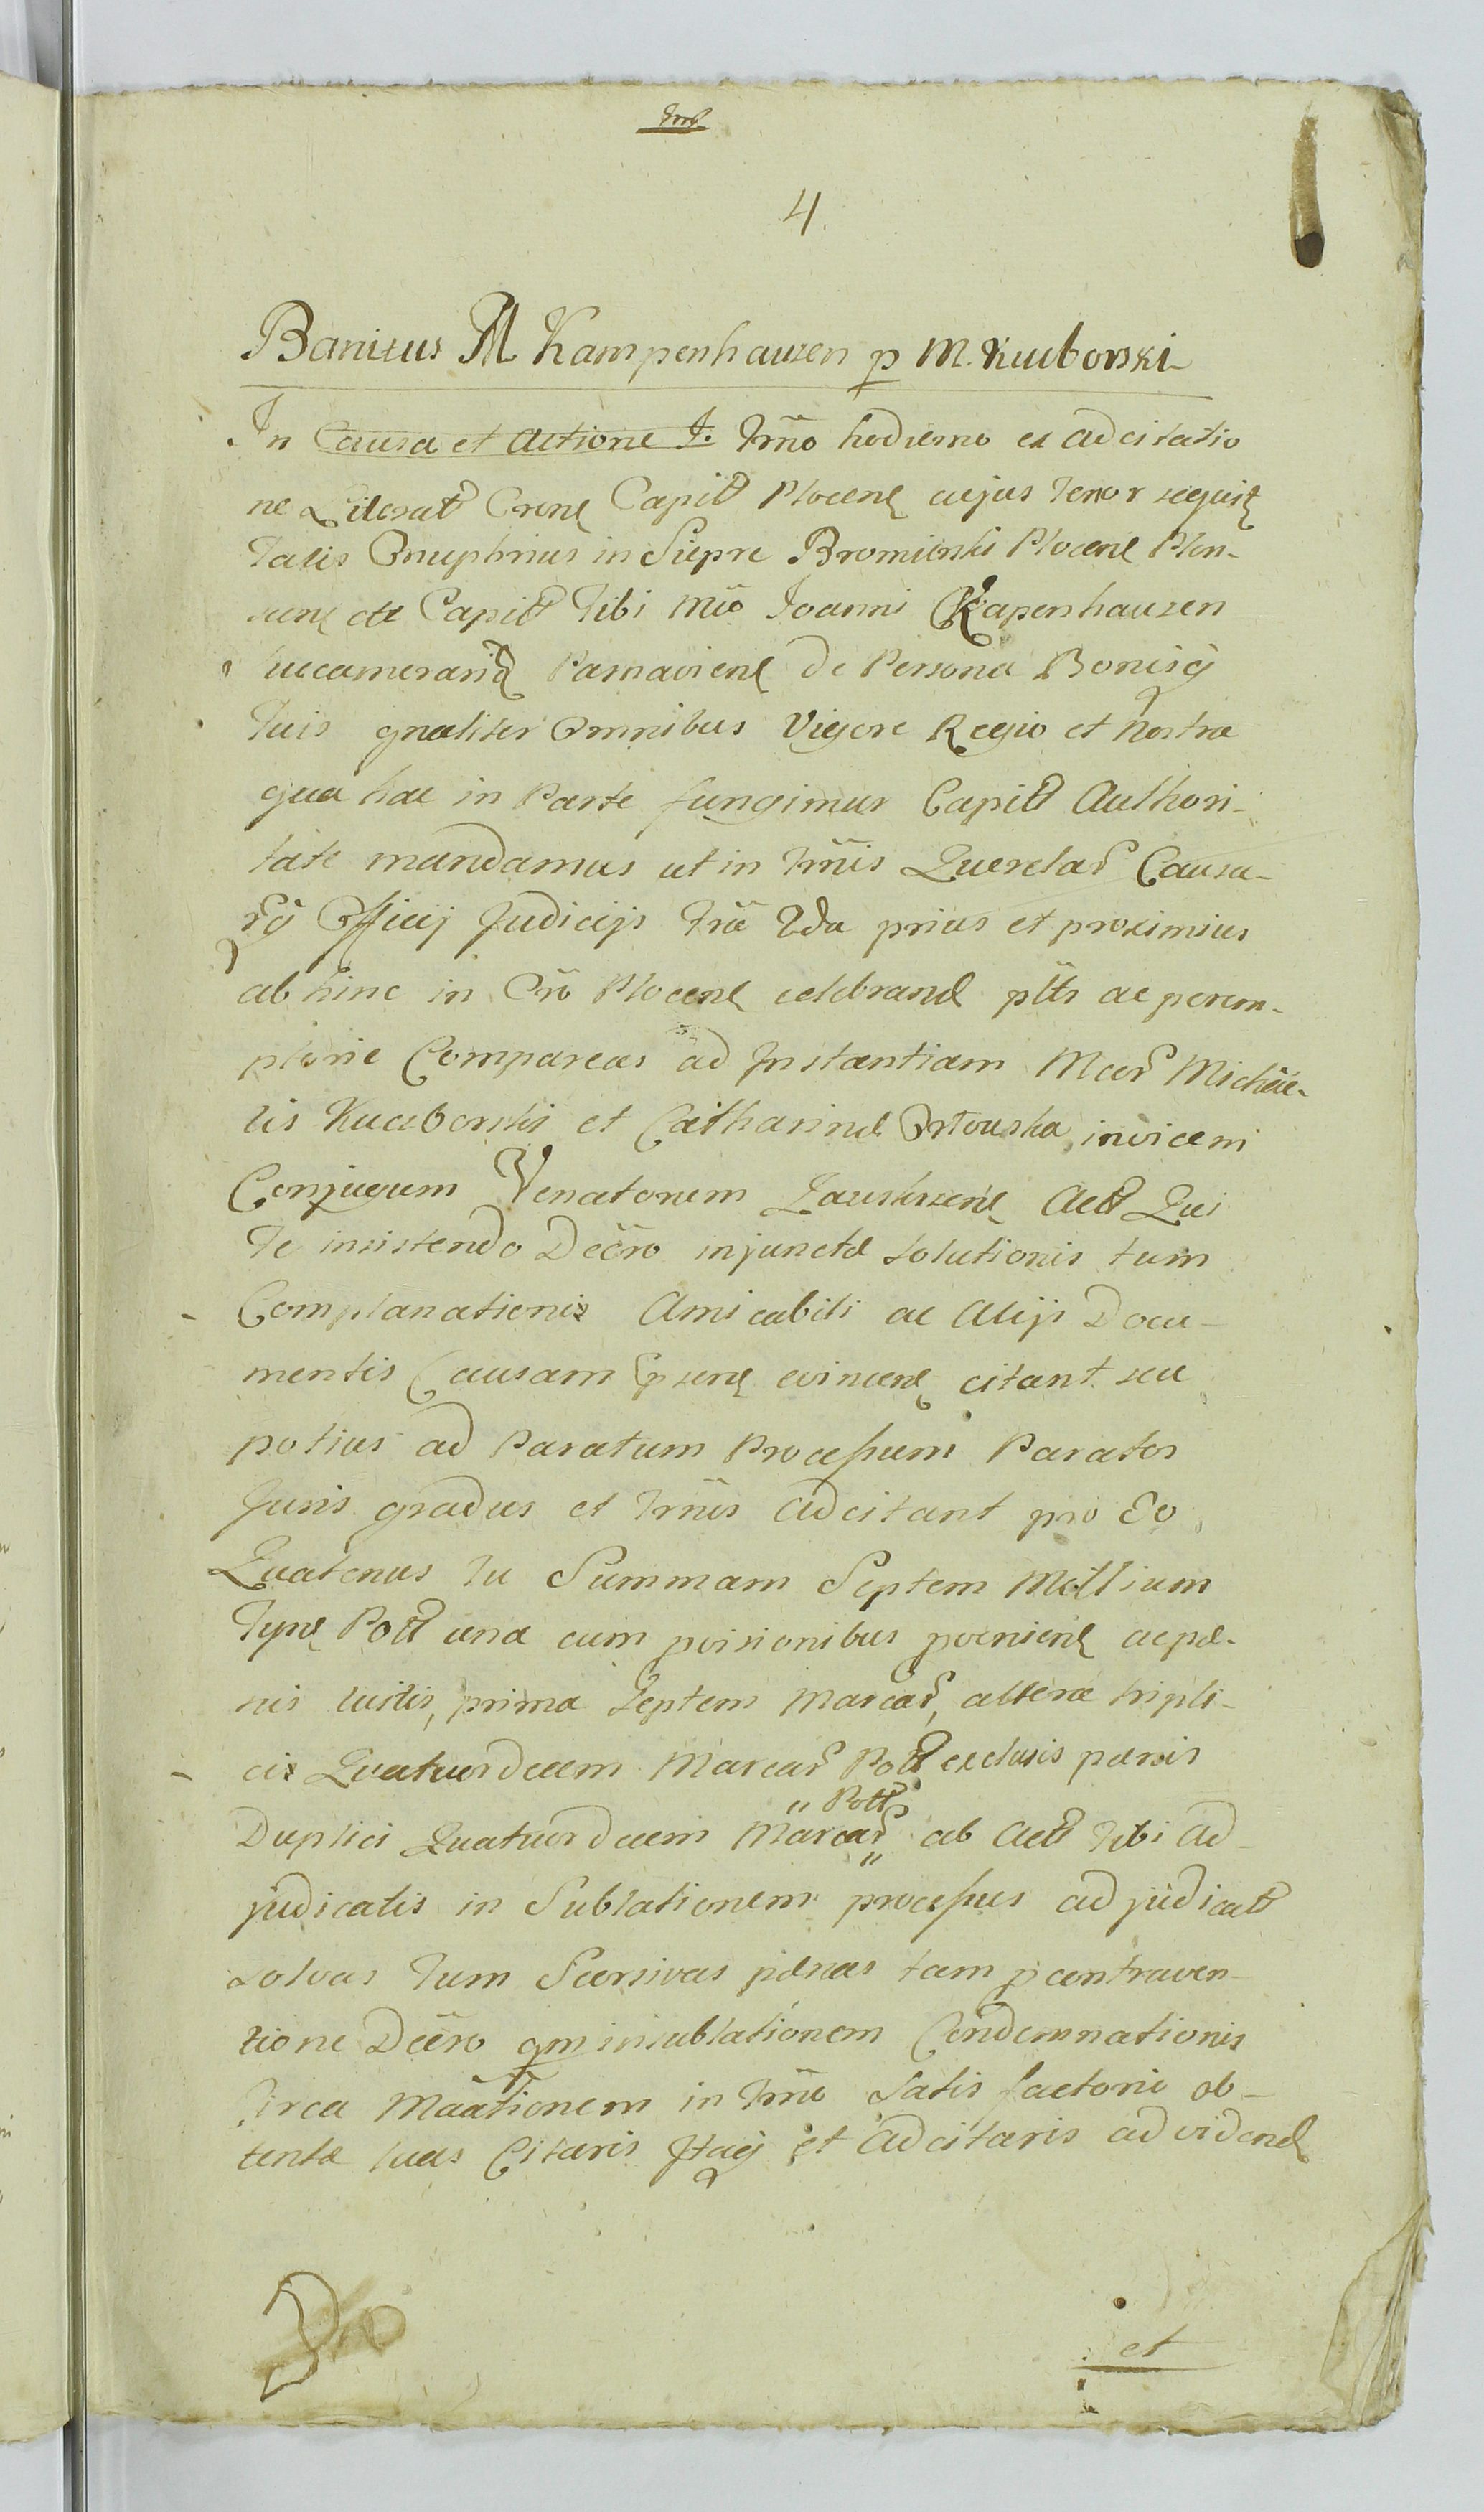 4.
Banitus M Kampenhauzen p M. Kucborski
In Causa et Actione I. Trno hodierno ex adcitatio
ne Literat Crene Capit Plocene cujus tenor sequit
talis Onuphrius in Siepre Bromierski Plocene Plon-
scene Capit Tibi Mco Joanni Kapenhauzen
succamerario Parnaviene de Persona Bonisq
tuis gnaliter Omnibus Vigore Regio et Nostra
qua hac in Parte fungimur Capit Authori-
tate mandamus ut in Trnis Querelar Causa-
rq Officij Judicijs prius et proximius
ab hinc in Plocene celebrand ptts ac perem-
ptorie Compareas ad Instantiam Mcor Michae-
lis Kucborski et Catharinae Ortowska invicem
Conjugum Venatorum Act Qui
Te insistendo Decro injunctae solutionis tum
Complanationis Amicabili ac Alijs Docu-
mentis Causam psene evincene citant seu
potius ad Paratum Processum Paratos
Juris gradus et Trnis adcitant pro Eo
Quatenus Tu Summam Septem Millium
Tyne Poll una cum proveniene ac pae-
nis luitis, prima Septem Marcar, altera tripli-
cis Quatuordecem Marcar Poll exclusis paenis
" Poll
Duplici Quatuordecem Marcar ab Act Tibi ad-
judicatis in Sublationem processus adjudicatt
solvas tum paenas tam p contraven-
tione Decro qm in sublationem Condemnationis
Circa Maationem in Trno Satisfactorio ob-
tenta luas Citaris Itaq et adcitaris ad vidend
et